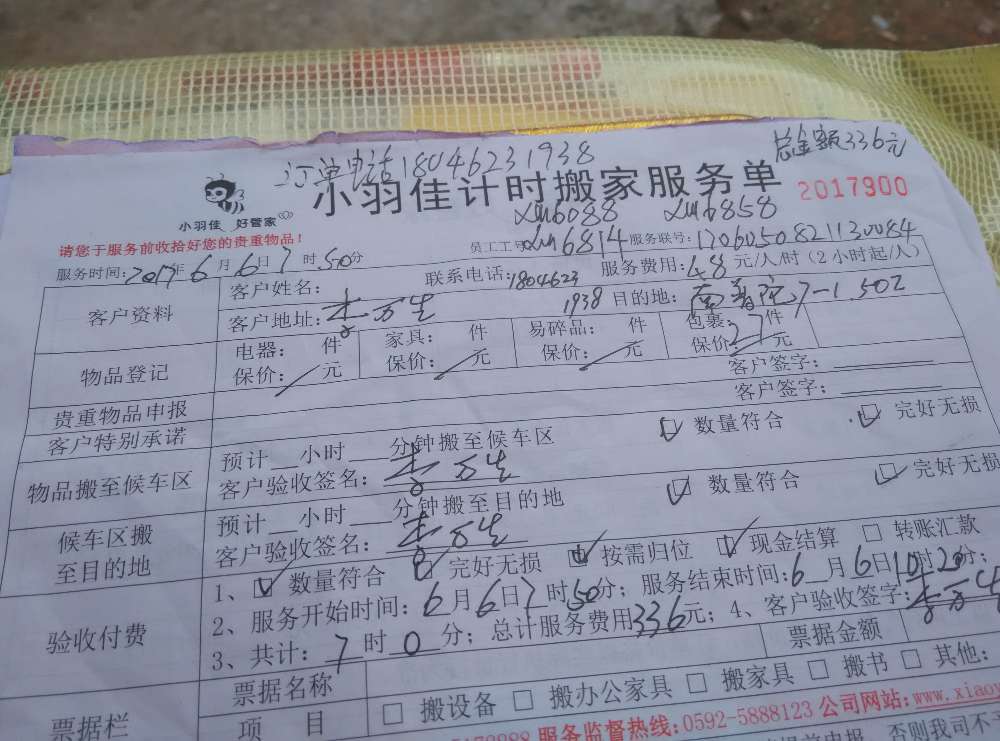 订单电话18046231938
总金额336元
小羽佳 好管家
小羽佳计时搬家服务单
2017900
请您于服务前收拾好您的贵重物品！
6088 6858
员工工号 6814 服务联号:1706050821130084
服务时间:2017年6月6日7时50分
联系电话:18046231938
服务费用:48元/人/时(2小时起/人)
客户资料
客户姓名:
客户地址:李万生
目的地: 南普陀7-1.502
物品登记
电器: 件 家具: 件 易碎品: 件 包裹:27件
保价: 元 保价: 元 保价: 元 保价: 元
客户签字:
贵重物品申报
客户签字:
客户特别承诺
物品搬至候车区
预计 小时 分钟搬至候车区 数量符合 完好无损
客户验收签名:李万生
候车区搬至目的地
预计 小时 分钟搬至目的地 数量符合 完好无损
客户验收签名:李万生
验收付费
1、 数量符合 完好无损 按需归位 现金结算 转账汇款
2、服务开始时间:6月6日7时50分; 服务结束时间:6月6日10时20分;
3、共计:7时0分; 总计服务费用336元; 4、客户验收签字:李万生
票据栏
票据名称
票据金额
项 目
搬设备 搬办公家具 搬家具 搬书 其他:
服务监督热线:0592-5888123 公司网站:www.xiaoy